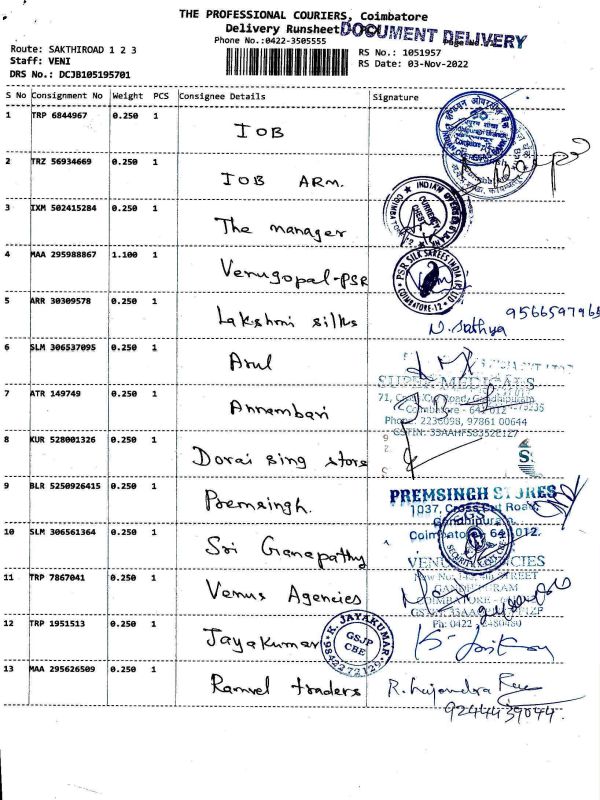 THE PROFESSIONAL COURIERS, Coimbatore
Delivery Runsheet
DOCUMENT DELIVERY
Phone No.:0422-3505555
Route: SAKTHIROAD 1 2 3
Staff: VENI
DRS No.: DCJB105195701
RS No.: 1051957
RS Date: 03-Nov-2022
S No Consignment No Weight PCS Consignee Details Signature
1 TRP 6844967 0.250 1 IOB
2 TRZ 56934669 0.250 1 IOB ARM.
3 IXM 502415284 0.250 1 The manager
INDIAN OVERSEAS
CURRENCY CHEST
4 MAA 295988867 1.100 1 Venugopal-PSR
PSR SILK SAREES INDIA (P) LTD
COIMBATORE-12
5 ARR 30309578 0.250 1 Lakshmi silks N. Sathya 9566597965
6 SLM 306537095 0.250 1 Arul
SUPER MEDICALS
71, Cross Cut Road, Gandhipuram
Coimbatore - 641 012
Phone: 2236098, 97861 00644
7 ATR 149749 0.250 1 Annambari
8 KUR 528001326 0.250 1 Dorai sing store
9 BLR 5250926415 0.250 1 Premsingh.
PREMSINGH STORES
1037, Cross Cut Road,
Gandhipuram,
Coimbatore - 641 012.
10 SLM 306561364 0.250 1 Sri Ganapathy
11 TRP 7867041 0.250 1 Venus Agencies
VENUS AGENCIES
STREET
GANDHIPURAM
COIMBATORE
Ph: 0422
12 TRP 1951513 0.250 1 Jayakumar
K. JAYAKUMAR
GSJP
CBE
13 MAA 295626509 0.250 1 Ramvel traders R. Rajendra
9244439044.